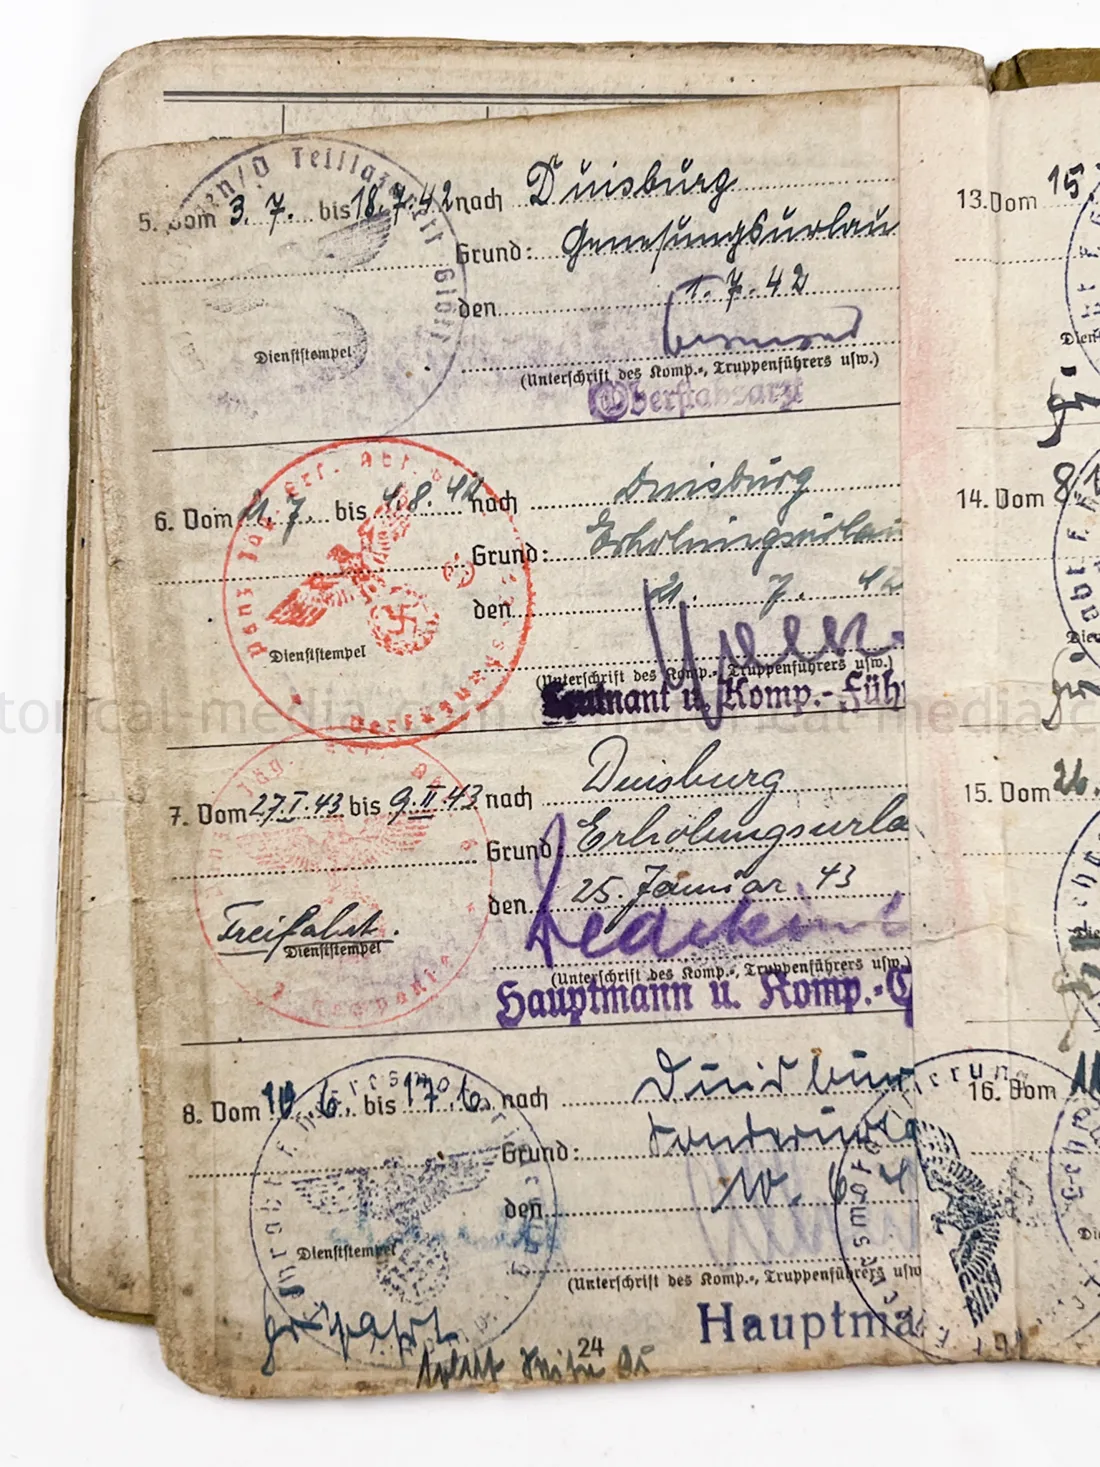 Teillazarett
5. Vom 3.7. bis 18.7.42 nach Duisburg
Grund: Genesungsurlau
den 1.7.42
Dienststempel
(Unterschrift des Komp.-, Truppenführers usw.)
Oberstabsarzt
6. Vom 21.7. bis 4.8.42 nach Duisburg
Grund: Erholungsurlau
den 21. 7. 42
Dienststempel
(Unterschrift des Komp.-, Truppenführers usw.)
Leutnant u. Komp.-Füh
7. Vom 27.I.43 bis 9.II.43 nach Duisburg
Grund Erholungsurla
den 25. Januar 43
Freifahrt.
Dienststempel
(Unterschrift des Komp.-, Truppenführers usw.)
Hauptmann u. Komp.-C
8. Vom 10.6. bis 17.6. nach Duisbur
Grund: Sonderurla
den 10. 6. 4
Dienststempel
(Unterschrift des Komp.-, Truppenführers usw
Hauptma
24
13. Vom 15
Dien
14. Vom 8
Die
15. Vom 26.
Die
16. Vom 11
Di
historical-media.com